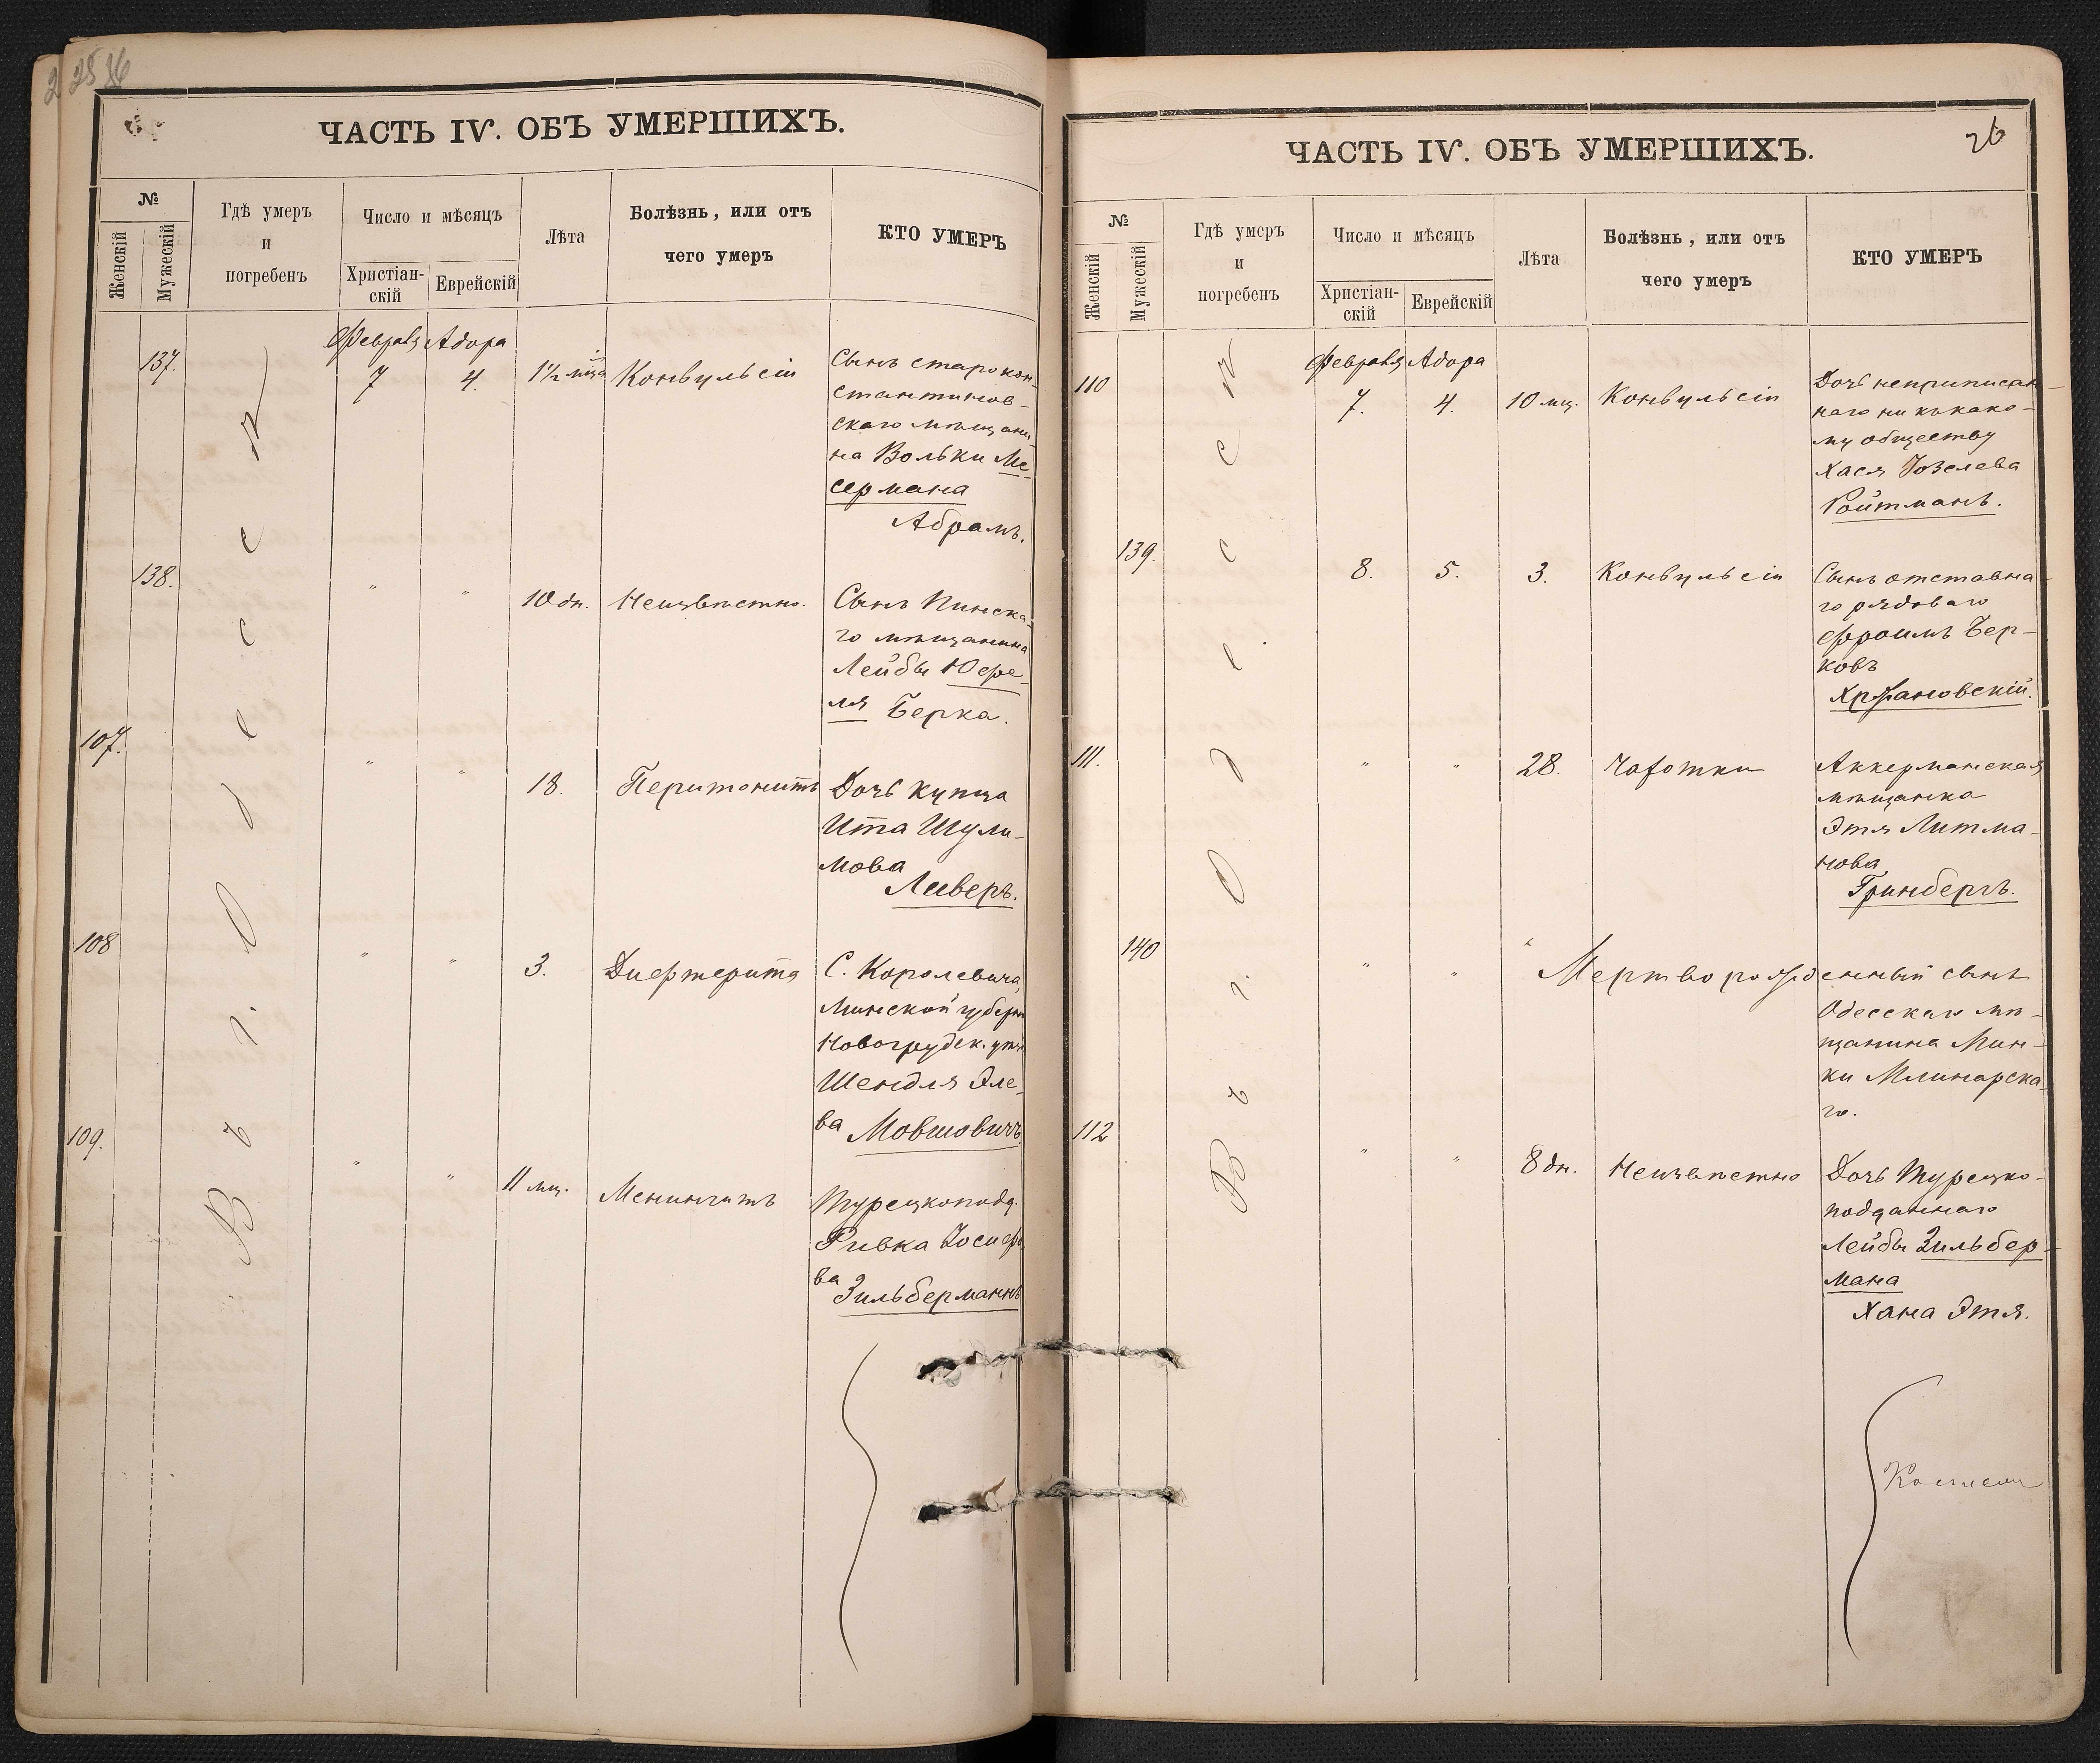 ЧАСТЬ IV. ОБЪ УМЕРШИХЪ.
№
Женскій
Мужескій
Гдѣ умеръ
и
погребенъ
Число и мѣсяцъ
Христіан-
скій
Еврейскій
Лѣта
Болѣзнь, или отъ
чего умеръ
КТО УМЕРЪ
Въ г. Одессѣ
Февраля Адора
137. 7 4. 1½ мца Конвульсіи
Сынъ старокон-
стантинов-
скаго мѣщани-
на Вольки Ме-
сермана
Абрамъ.
138. " " 10 дн. Неизвѣстно.
Сынъ Пинска-
го мѣщанина
Лейбы Юфе-
ля Берка.
107. " " 18. Перитонитъ
Дочь купца
Ита Шули-
мова
Ливеръ.
108 " " 3. Дифтерита
С. Королевича,
Минской губерн
Новогрудск. уѣз
Шендля Эле-
ва Мовшовичъ
109. " " 11 мц. Менингитъ
Турецкопод.
Ривка Іосифо
ва
Зильберманнъ
ЧАСТЬ IV. ОБЪ УМЕРШИХЪ.
26
№
Женскій
Мужескій
Гдѣ умеръ
и
погребенъ
Число и мѣсяцъ
Христіан-
скій
Еврейскій
Лѣта
Болѣзнь, или отъ
чего умеръ
КТО УМЕРЪ
Въ г. Одессѣ
Февраля Адора
110 7. 4. 10 мц. Конвульсіи
Дочь неприписан-
наго ни къ како-
му обществу
Хася Іозелева
Ройтманъ.
139. 8. 5. 3. Конвульсіи
Сынъ отставна-
го рядоваго
Фроимъ Бер-
ковъ
Хржановскій.
111. " " 28. Чахотки
Аккерманская
мѣщанка
Этя Литма-
нова
Гринбергъ.
140 " " " Мертворожденный сынъ
Одесскаго мѣ-
щанина Мин-
ки Млинарска-
го.
112 " " 8 дн. Неизвѣстно
Дочь Турецко-
подданнаго
Лейбы Зильбер-
мана
Хана Этя.